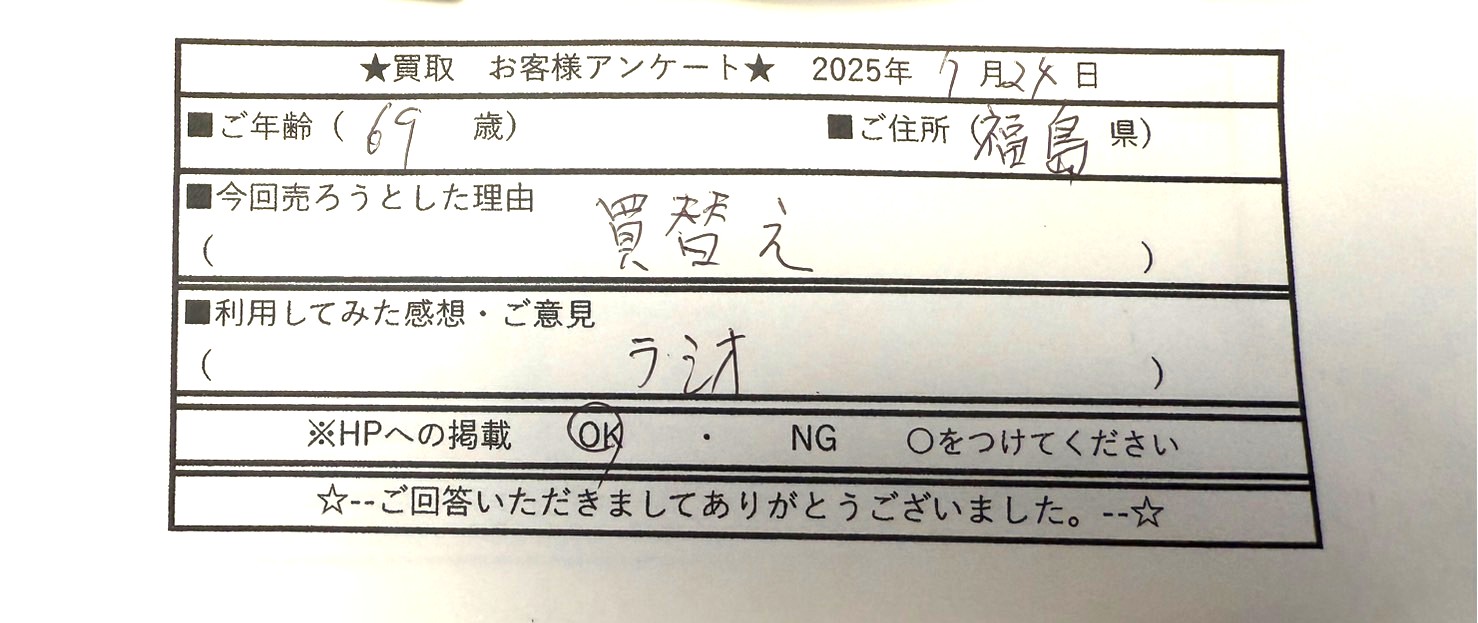 ★買取 お客様アンケート★ 2025年 7月24日
■ご年齢(69 歳) ■ご住所(福島県)
■今回売ろうとした理由
(買替え)
■利用してみた感想・ご意見
(ラジオ)
※HPへの掲載 OK ・ NG ○をつけてください
☆--ご回答いただきましてありがとうございました。--☆